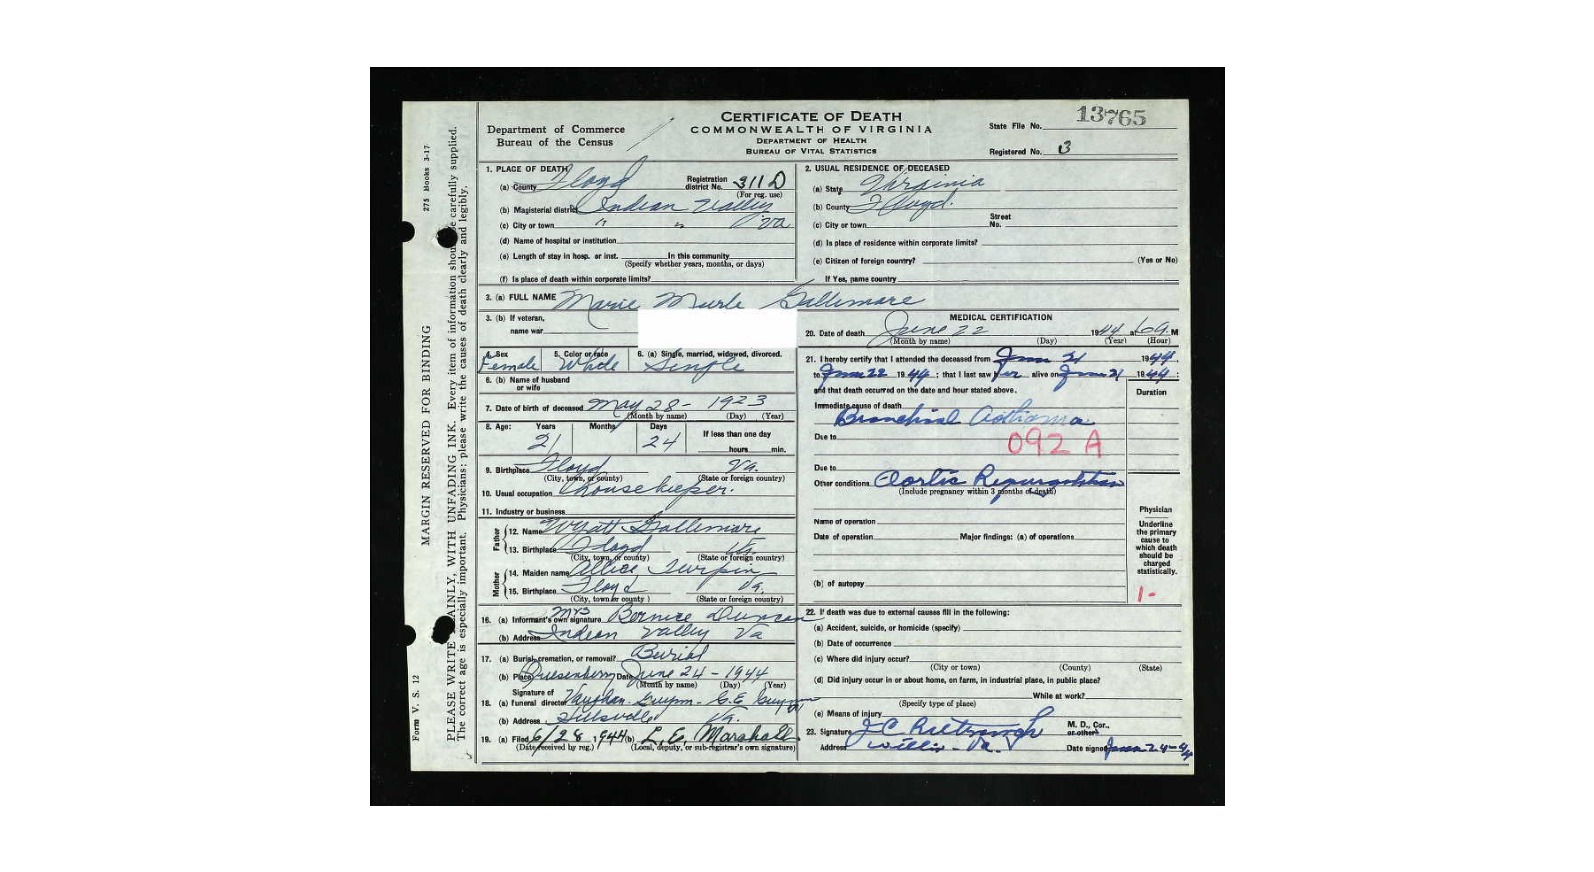 CERTIFICATE OF DEATH
COMMONWEALTH OF VIRGINIA
DEPARTMENT OF HEALTH
BUREAU OF VITAL STATISTICS
Department of Commerce
Bureau of the Census
State File No. 13765
Registered No. 3
1. PLACE OF DEATH
(a) County Floyd Registration district No. 311 D
(For reg. use)
(b) Magisterial district Indian Valley
(c) City or town " " Va
(d) Name of hospital or institution
(e) Length of stay in hosp. or inst. In this community
(Specify whether years, months, or days)
(f) Is place of death within corporate limits?
2. USUAL RESIDENCE OF DECEASED
(a) State Virginia
(b) County Floyd.
(c) City or town Street No.
(d) Is place of residence within corporate limits?
(e) Citizen of foreign country? (Yes or No)
If Yes, name country
3. (a) FULL NAME Marie Murle Gallimore
3. (b) If veteran,
name war
4. Sex 5. Color or race 6. (a) Single, married, widowed, divorced.
Female White Single
6. (b) Name of husband
or wife
7. Date of birth of deceased May 28 - 1923
(Month by name) (Day) (Year)
8. Age: Years Months Days If less than one day
21 24 hours min.
9. Birthplace Floyd Va.
(City, town, or county) (State or foreign country)
10. Usual occupation housekeeper.
11. Industry or business
Father
12. Name Wyatt Gallimore
13. Birthplace Floyd Va.
(City, town, or county) (State or foreign country)
Mother
14. Maiden name Allice Turpin
15. Birthplace Floyd Va.
(City, town or county) (State or foreign country)
16. (a) Informant's own signature Mrs Bernice Duncan
(b) Address Indian Valley Va
17. (a) Burial, cremation, or removal? Burial
(b) Place Quesenberry Date June 24 - 1944
(Month by name) (Day) (Year)
Signature of
18. (a) funeral director Vaughan Guynn - G.E. Guynn
(b) Address Hillsville Va.
19. (a) Filed 6/28 1944 (b) L. E. Marshall
(Date received by reg.) (Local, deputy, or sub-registrar's own signature)
MEDICAL CERTIFICATION
20. Date of death June 22 1944 at M
(Month by name) (Day) (Year) (Hour)
21. I hereby certify that I attended the deceased from June 21 1944
to June 22 1944; that I last saw her alive on June 21 1944;
and that death occurred on the date and hour stated above. Duration
Immediate cause of death
Bronchial Asthma
Due to 092 A
Due to
Other conditions Aortic Regurgitation
(Include pregnancy within 3 months of death)
Name of operation
Date of operation Major findings: (a) of operations
(b) of autopsy
Physician
Underline
the primary
cause to
which death
should be
charged
statistically.
1-
22. If death was due to external causes fill in the following:
(a) Accident, suicide, or homicide (specify)
(b) Date of occurrence
(c) Where did injury occur?
(City or town) (County) (State)
(d) Did injury occur in or about home, on farm, in industrial place, in public place?
While at work?
(Specify type of place)
(e) Means of injury
23. Signature J C M. D., Cor., or other
Address Willis - Va. Date signed June 24-44
275 Books 3-17
MARGIN RESERVED FOR BINDING
Form V. S. 12
PLEASE WRITE PLAINLY, WITH UNFADING INK. Every item of information should be carefully supplied.
The correct age is especially important. Physicians: please write the causes of death clearly and legibly.